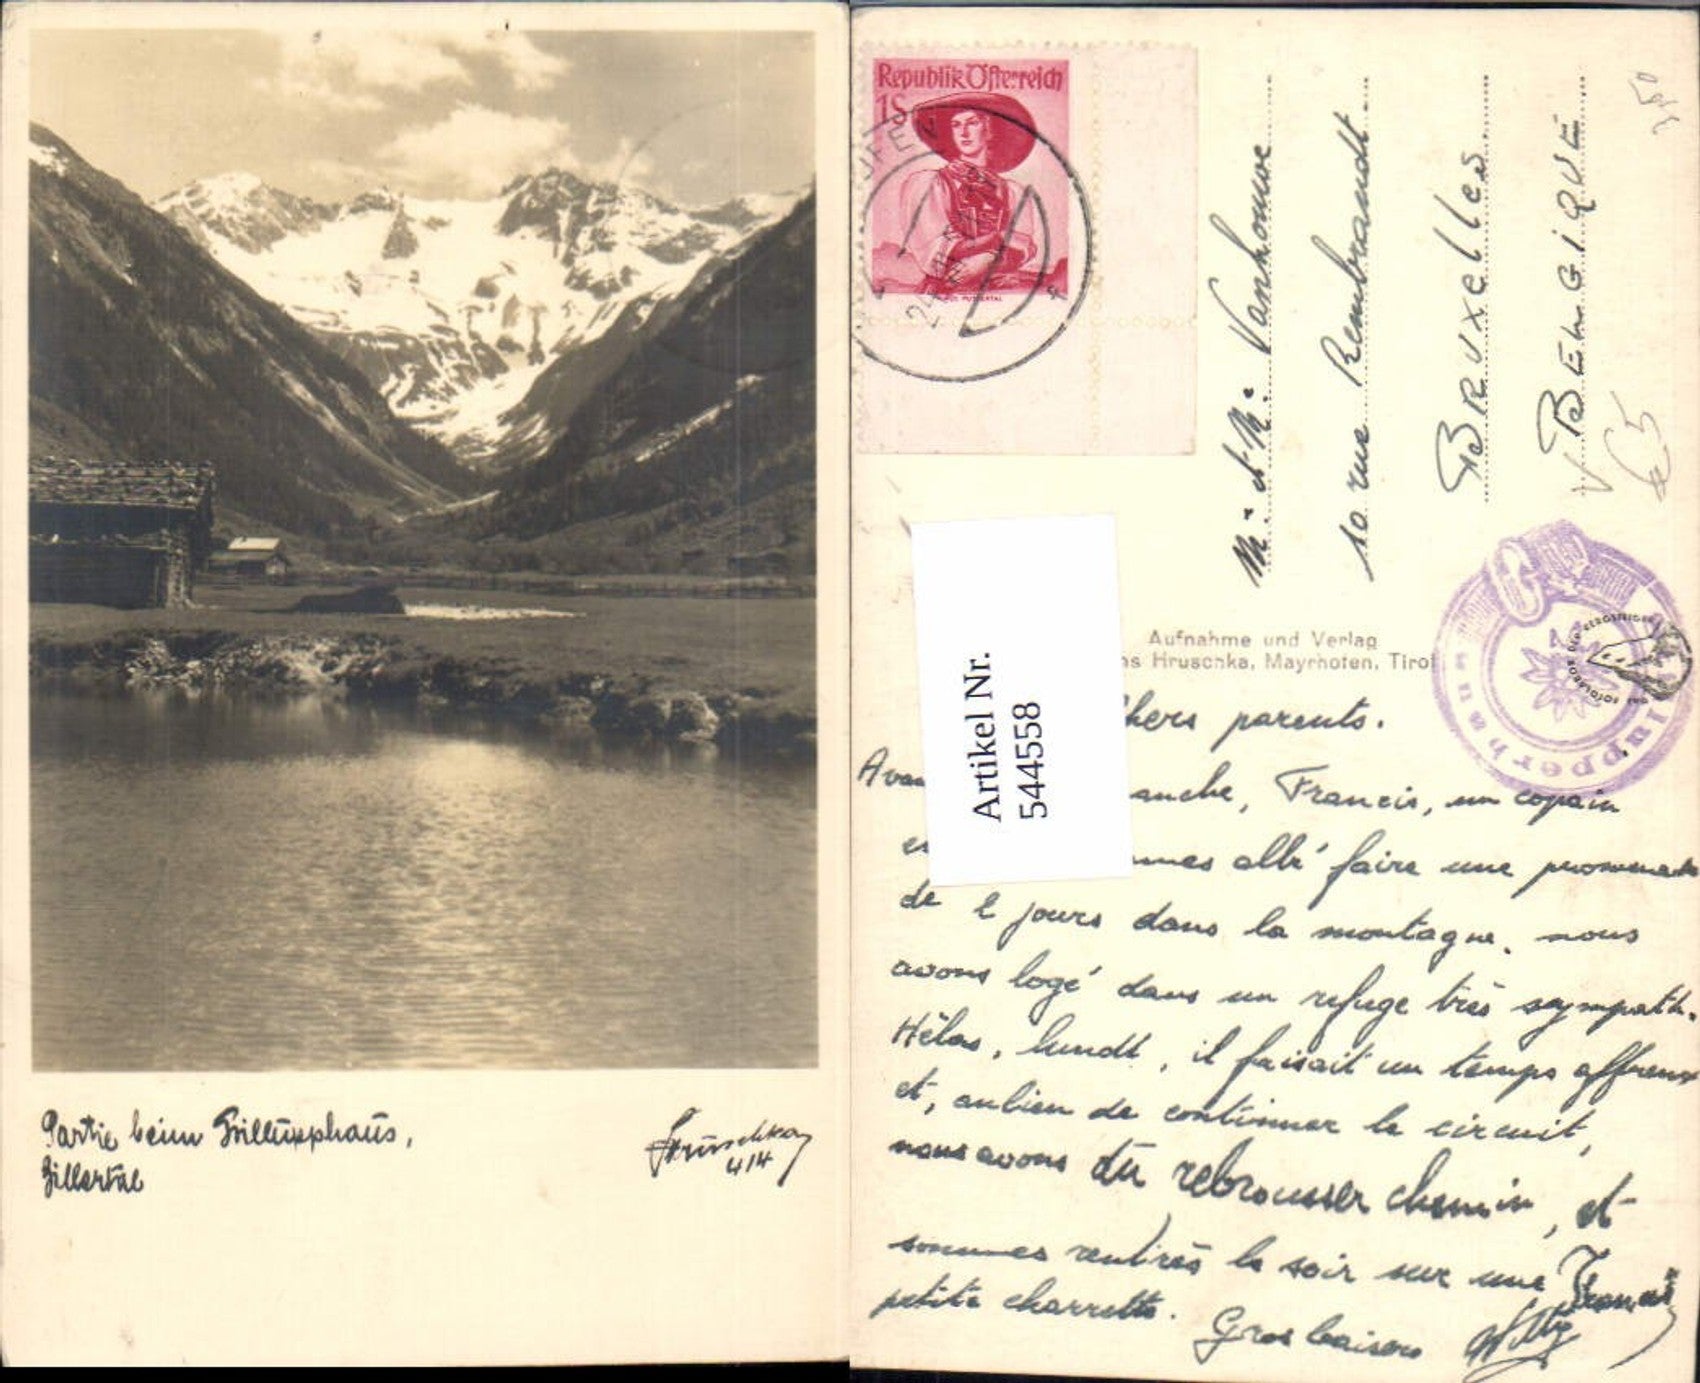 Partie beim Grillüpphaus,
Zillertal
Hruschka
414
Republik Österreich
1S
M. et M. Vanhouwe
10 rue Rembrandt
BRUXELLES
BELGIQUE
Aufnahme und Verlag
ns Hruschka, Mayrhofen, Tirol
Artikel Nr.
544558
Chers parents.
Avan anche, Francis, un copain
mmes allé faire une promenade
de 2 jours dans la montagne. nous
avons logé dans un refuge très sympath.
Hélas, lundi, il faisait un temps affreux
et, au lieu de continuer le circuit,
nous avons dû rebrousser chemin, et
sommes rentrés le soir sur une
petite charrette.
Gros baisers
Francis
Willy